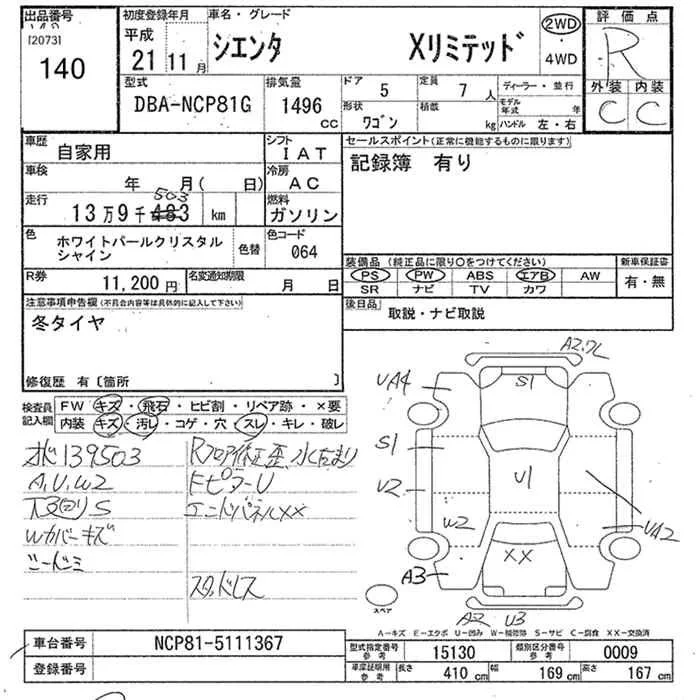 出品番号
[2073]
140
初度登録年月
平成
21 11月
車名・グレード
シエンタ Xリミテッド
2WD
・
4WD
評価点
R
外装 内装
C C
型式
DBA-NCP81G
排気量
1496
cc
ドア 5
定員 7 人
ディーラー・並行
形状 ワゴン
積載 kg
モデル年式 年
ハンドル 左・右
車歴
自家用
シフト
IAT
セールスポイント(正常に機能するものに限ります)
記録簿 有り
車検
年 月( 日)
冷房
AC
走行
503
13万9千483 km
燃料
ガソリン
色
ホワイトパールクリスタル
シャイン
色替
色コード
064
装備品(純正品に限り○をつけてください)
PS PW ABS エアB AW
SR ナビ TV カワ
新車保証書
有・無
R券
11,200円
名変通知期限
月 日
後日品
取説・ナビ取説
注意事項申告欄(不具合内容等は具体的に記入して下さい)
冬タイヤ
修復歴 有〔箇所 〕
検査員
記入欄
FW キズ・飛石・ヒビ割・リペア跡・×要
内装 キズ・汚レ・コゲ・穴・スレ・キレ・破レ
139503
A,U,W2
下回りS
Wカバーキズ
Rフロア修正歪、水たまり
FピラーU
エンドパネルXX
スタッドレス
A2.ワレ
UA4
S1
S1
U2
U1
W2
UA2
XX
A3
A2 U3
スペア
A－キズ E－エクボ U－凹み W－補修跡 S－サビ C－腐食 XX－交換済
車台番号
NCP81-5111367
登録番号
型式指定番号
参考
15130
類別区分番号
参考
0009
車庫証明用
参考
長さ 410 cm
幅 169 cm
高さ 167 cm